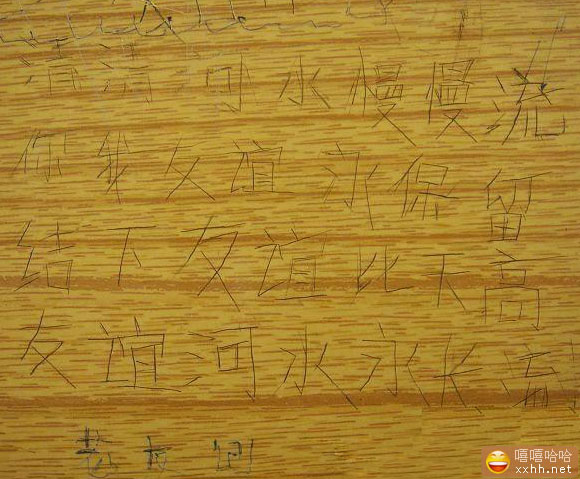 清清河水慢慢流
你我友谊永保留
结下友谊比天高
友谊河水永长流
嘻嘻哈哈
xxhh.net